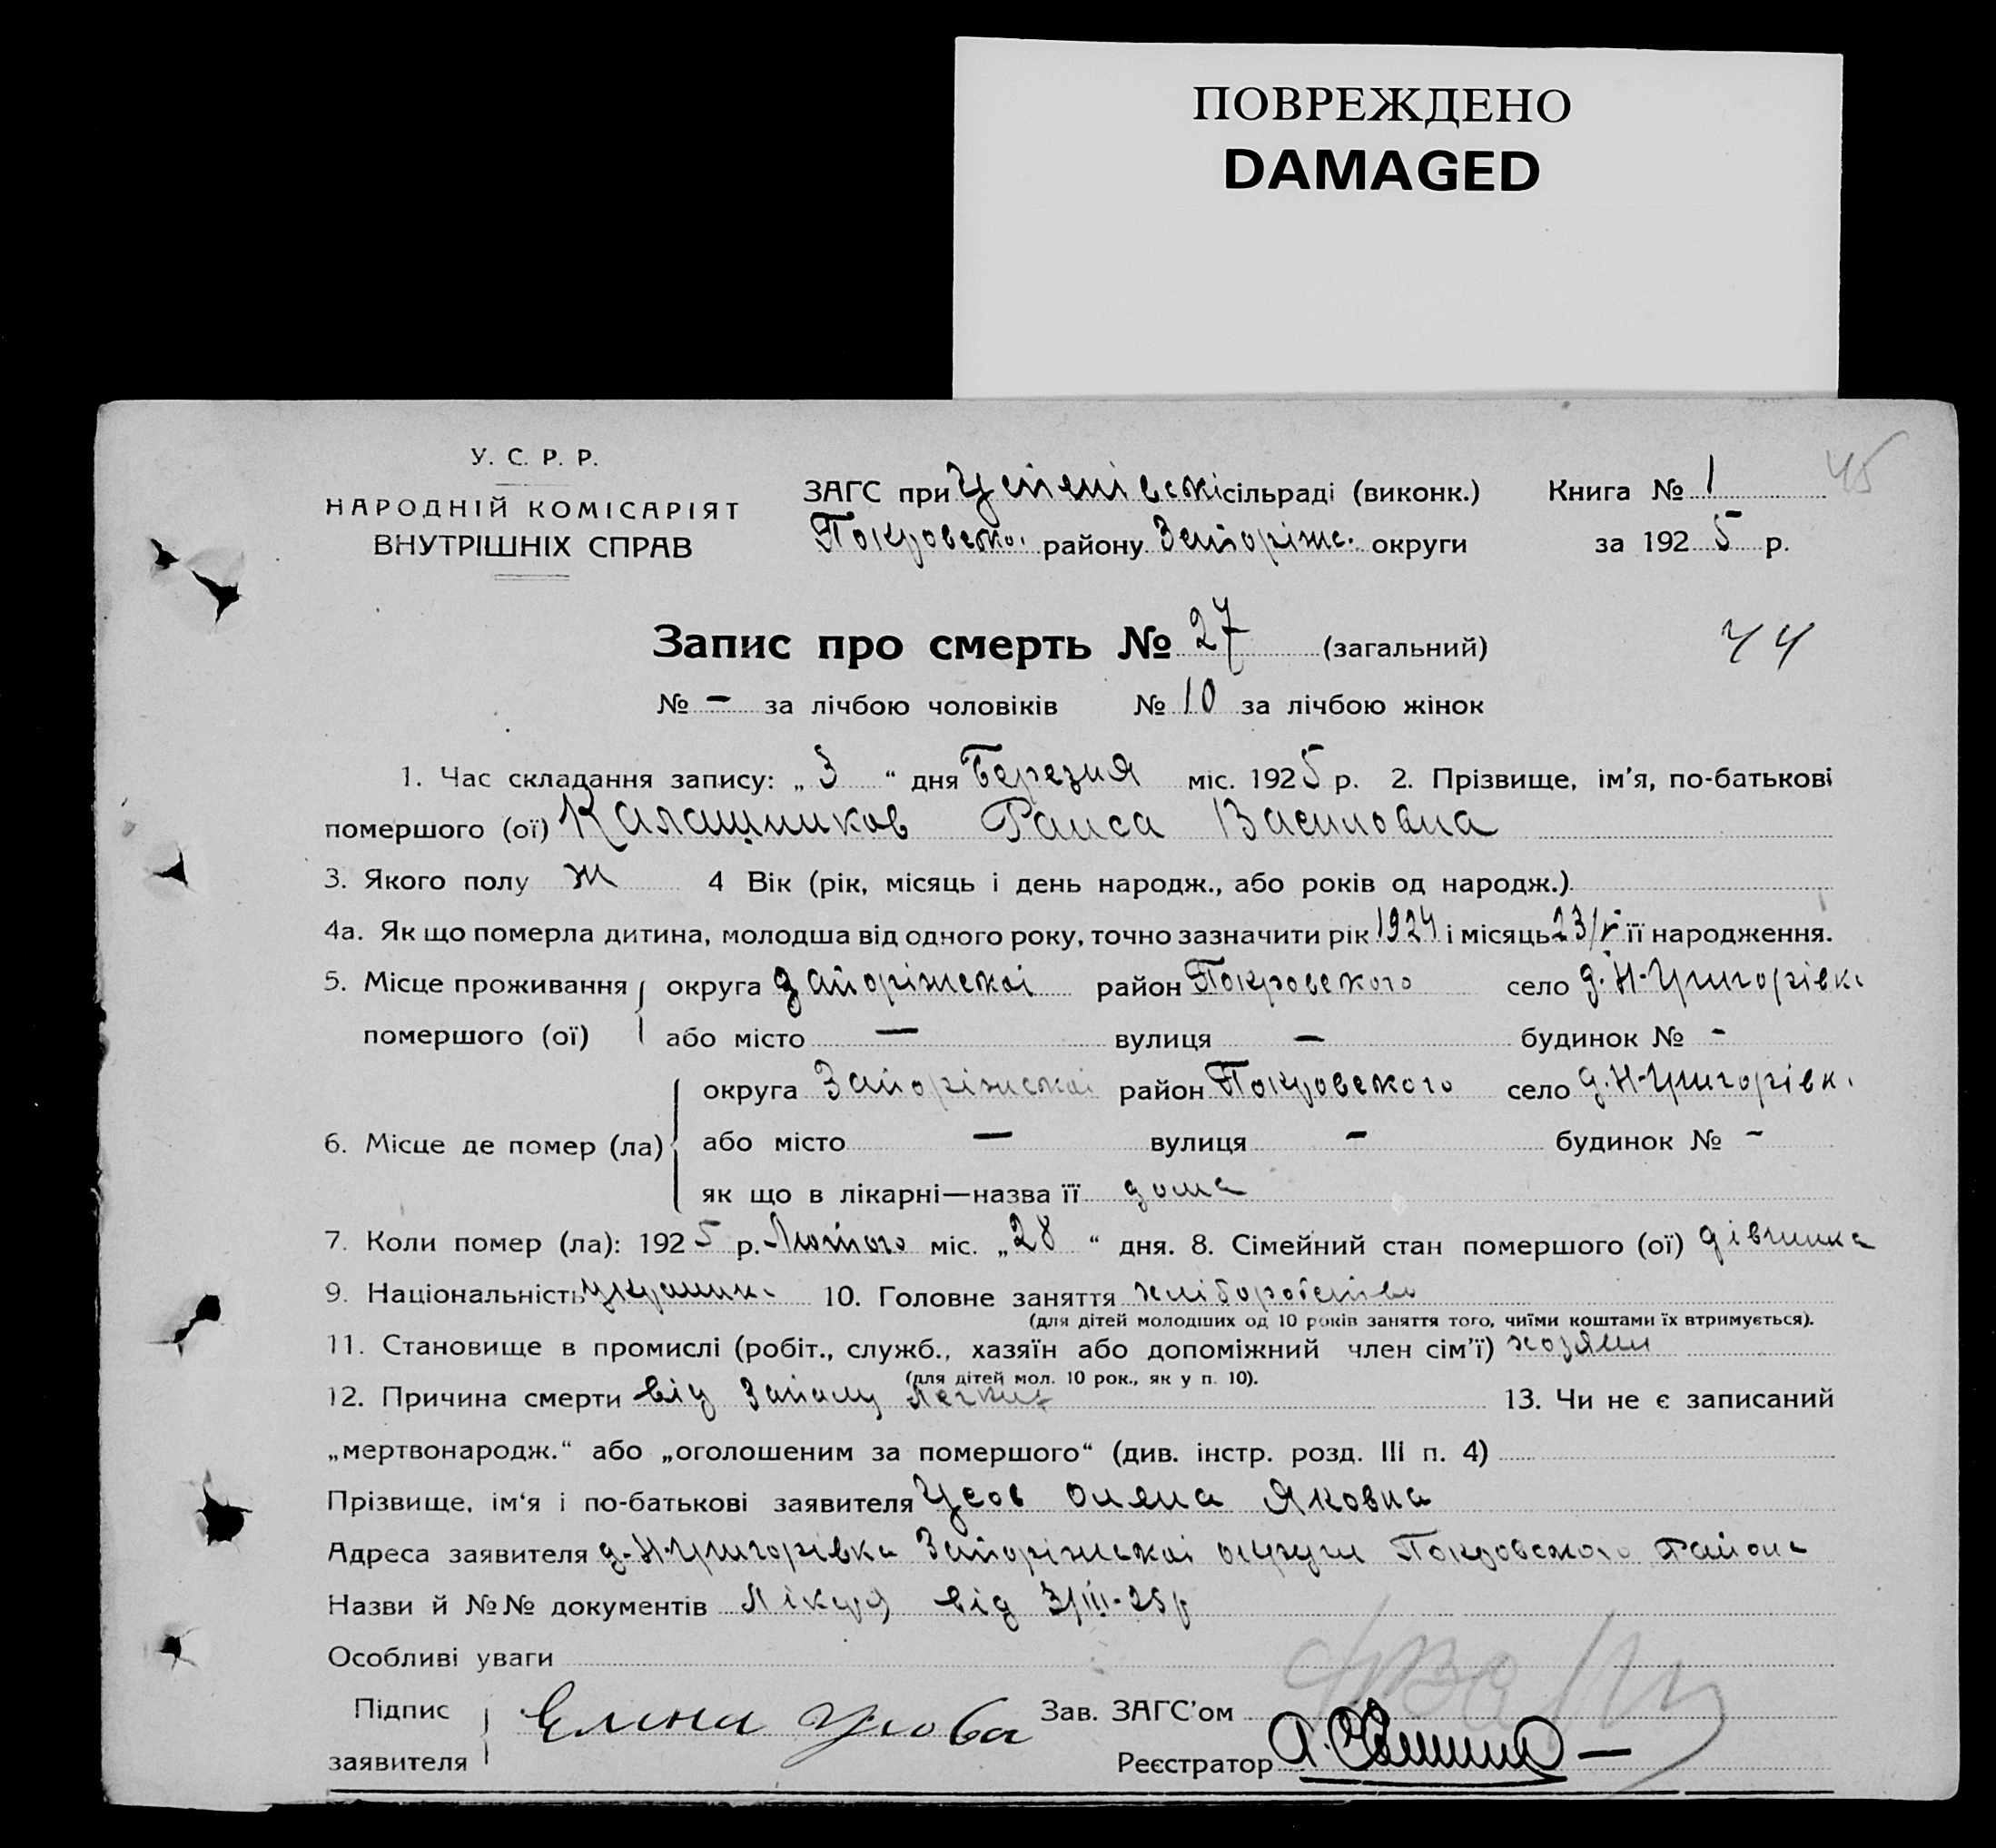 ПОВРЕЖДЕНО
DAMAGED
У. С. Р. Р.
НАРОДНІЙ КОМІСАРІЯТ
ВНУТРІШНІХ СПРАВ
ЗАГС при сільраді (виконк.)
Покровсько. району Запоріжс. округи
Книга № 1
за 1925 р.
45
Запис про смерть № 27 (загальний)
44
№ – за лічбою чоловіків № 10 за лічбою жінок
1. Час складання запису: „3“ дня Березня міс. 1925 р. 2. Прізвище, ім'я, по-батькові
помершого (ої) Калашников Раиса Василовна
3. Якого полу ж 4 Вік (рік, місяць і день народж., або років од народж.)
4а. Як що померла дитина, молодша від одного року, точно зазначити рік 1924 і місяць 23/V її народження.
5. Місце проживання округа Запоріжскоі район Покровского село д. Н-Григорівк.
помершого (ої) або місто — вулиця — будинок № -
округа Запоріжскоі район Покровского село д. Н-Григорівк.
6. Місце де помер (ла) або місто — вулиця - будинок № -
як що в лікарні—назва її дома
7. Коли помер (ла): 1925 р. Лютого міс. „28“ дня. 8. Сімейний стан помершого (ої) дівчинка
9. Національність украинк. 10. Головне заняття хліборобство
(для дітей молодших од 10 років заняття того, чиїми коштами їх втримується).
11. Становище в промислі (робіт., служб., хазяїн або допоміжний член сім'ї) хозяин
(для дітей мол. 10 рок., як у п. 10).
12. Причина смерти від Запалу Легких 13. Чи не є записаний
„мертвонародж.“ або „оголошеним за помершого“ (див. інстр. розд. III п. 4)
Прізвище, ім'я і по-батькові заявителя Усов Оляна Яковна
Адреса заявителя д. Н-Григорівка Запоріжскоі округи Покровского района
Назви й №№ документів Лікаря від 3/III-25 р
Особливі уваги
Підпис
заявителя
Елина Усова
Зав. ЗАГС'ом
Реєстратор